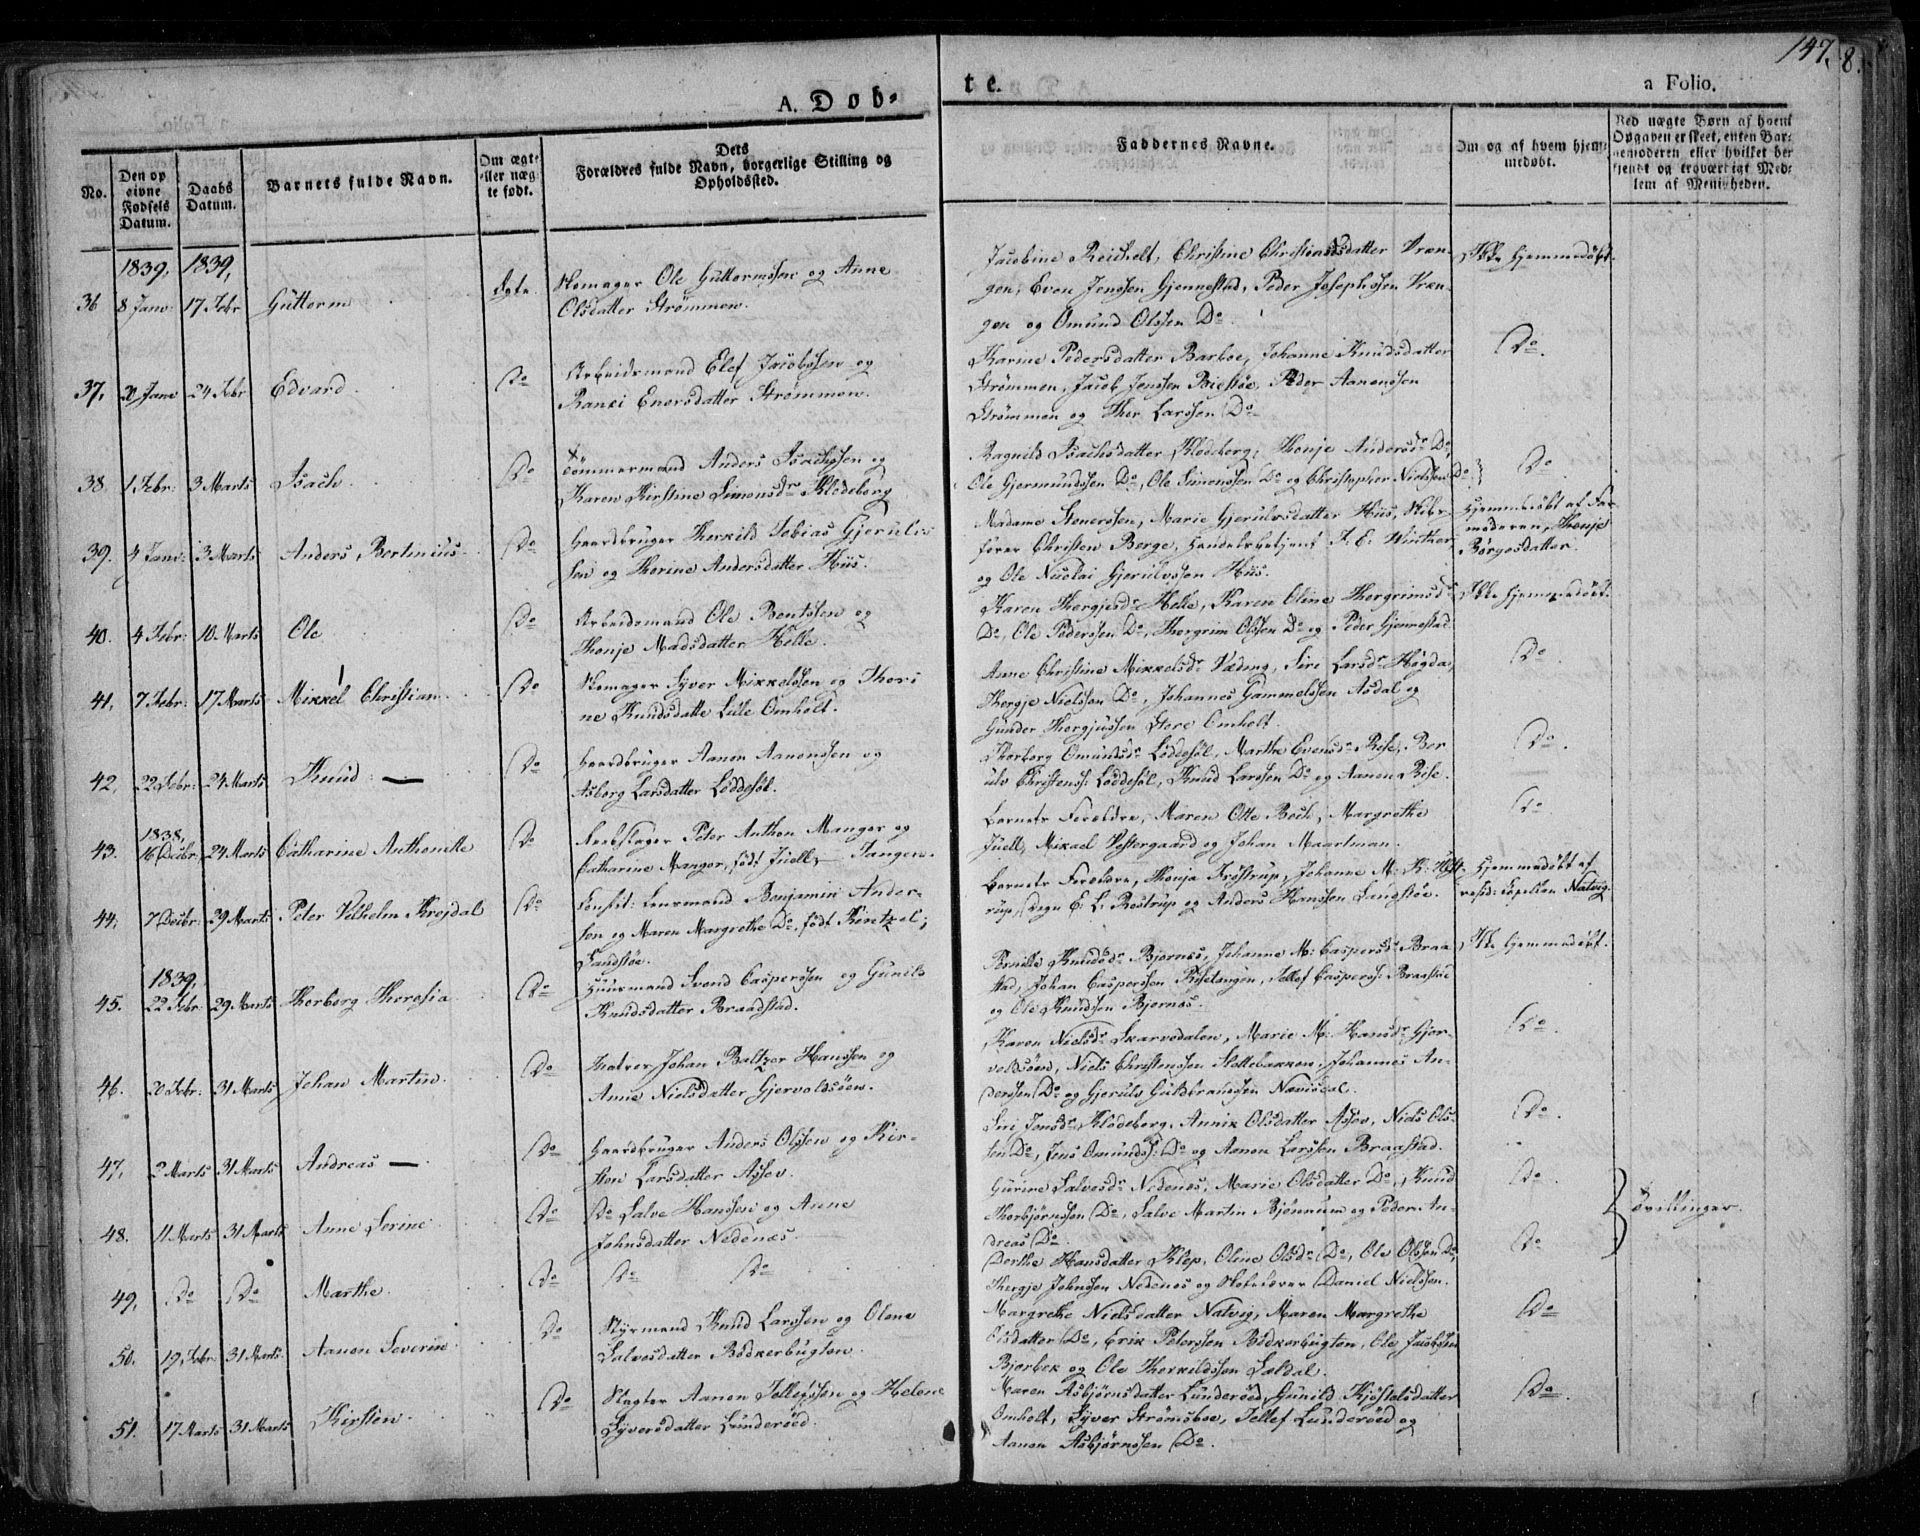 147. 8.
A. Dob-
te.
a Folio.
No.
Den op
givne
Fødsels
Datum.
Daabs
Datum.
Barnets fulde Navn.
Om ægte
eller næg
te født.
Dets
Forældres fulde Navn, borgerlige Stilling og
Opholdssted.
Faddernes Navne.
Om og af hvem hjem-
medøbt.
Ved nægte Børn af hvem
Opgaven er skeet, enten Bar-
nemoderen eller hvilket her
kjendt og troværdigt Med-
lem af Menigheden.
1839, 1839,
36 8 Janv: 17 Febr Guttorm Ægte.
Skomager Ole Guttormssen og Anne
Olsdatter Strømmen.
Jacobine Reichelt, Christine Christensdatter Vræn-
gen, Even Jenssen Gjennestad, Peder Josephssen Vræn-
gen og Omund Olssen Do.
Ikke hjemmedøbt.
37, 20 Janv 24 Febr Edvard. Do
Arbeidsmand Elef Jacobssen og
Ranei Enersdatter Strømmen.
Karine Pedersdatter Barboe, Johanne Knudsdatter
Strømmen, Jacob Jenssen Biestøe, Peder Aanenssen
Strømmen og Thor Larssen Do
Do.
38. 1 Febr: 3 Marts Isach. Do
Tømmermand Anders Isachssen og
Karen Kirstine Simonsdr Klodeborg
Ragnild Isachsdatter Klodeborg, Thonje Andersdr Do,
Ole Gjermundssen Do, Ole Simonssen Do og Christopher Nielssen Do
Do
39. 4 Janv: 3 Marts Anders, Bertinius. Do
Gaardbruger Therkild Tobias Gjerulvs
sen og Thorine Andersdatter Hiis.
Madame Stenerssen, Marie Gjerulvsdatter Hiis, Skibs-
fører Christen Berge, Handelsbetjent J. E. Winther,
og Ole Nicolai Gjerulvssen Hiis.
Hjemmedøbt af Far-
moderen, Thonje
Børgesdatter.
40. 4 Febr: 10. Marts Ole Do
Arbeidsmand Ole Bentssen og
Thonje Madsdatter Helle.
Karen Thergjesdr Helle, Karen Oline Thorgrimsdr
Do, Ole Pederssen Do, Thorgrim Olssen Do og Peder Gjennestad
Ikke hjemmedøbt.
41, 7 Febr: 17 Marts Mikkel Christian Do
Skomager Syver Mikkelssen og Thori
ne Knudsdatte Lille Omholt.
Anne Christine Mikkelsdr Væding, Siri Larsdr Høgda,
Thergje Nielssen Do, Johannes Gammelssen Asdal og
Gunder Thergjussen Store Omholt.
Do.
42, 22 Febr: 24 Marts Knud — Do
Gaardbruger Aanon Aanonssen og
Asborg Larsdatter Løddesøl.
Thorborg Omundsdr Løddesøl, Marthe Evensdr Rise, Ber
ulv Christenss: Løddesøl, Knud Larssen Do og Aanen Rise.
Do.
1838,
43. 16 Decbr, 24 Marts Catharine Anthonette Do
Reebslager Peter Anthon Manger og
Catharine Manger, født Juell, Tangen.
Barnets Forældre, Maren Otte Boch, Margrethe
Juell, Mikael Vestergaard og Johan Maartman.
Do.
44, 7 Decbr: 29 Marts Peter Vilhelm Krejdal Do
Const: Lensmand Benjamin Ander-
sen og Maren Margrethe Do, født Kintzel;
Sandstøe.
Barnets Forældre, Thonja Frøstrup, Johanne M. K.
rup, Degn E. L. Rostrup og Anders Hanssen Langstøe.
Hjemmedøbt af
resid: Capellan Natvig.
1839,
45. 22 Febr: 29 Marts Thorborg Theresia Do
Huusmand Svend Casperssen og Gunild
Knudsdatter Braadstad.
Pernille Knudsdr Bjornes, Johanne M: Caspersdr Braa
stad, Johan Casperssen Riseltangen, Tellef Casperss: Braastad
og Ole Knudssen Bjornes.
Ikke hjemmedøbt.
46. 20 Febr: 31 Marts Johan Martin. Do
Matros Johan Baltzer Hanssen og
Anne Nielsdatter Gjervoldsøen.
Karen Nielsdr Skarvedalen, Marie M: Hansdr Gjer-
voldsøen, Niels Christenssen Slottebakken, Johannes An-
derssen Do og Gjerulv Guldbrandssen Næviisdal.
Do.
47, 2 Marts 31 Marts Andreas — Do
Gaardbruger Anders Olssen og Kir-
sten Larsdatter Assev.
Siri Jensdr Klodeborg, Annie Olsdatter Assev, Niels Ols-
sen Do, Jens Omundss: Do og Aanon Larssen Braastad.
Do.
48. 11 Marts 31 Marts Anne Serine Do
Do Salve Hanssen og Anne
Johnsdatter Nedenæs.
Gurine Salvesdr Nedenes, Marie Olsdatter Do, Knud
Thorbjørnssen Do, Salve Martin Bjønnum og Peder An-
dreas Do.
Do.
Tvillinger
49, Do Do Marthe. Do
Do Do
Dorthe Hansdatter Klep, Oline Olsdr Do, Ole Olssen Do,
Thergje Johnssen Nedenes og Skoleholder Daniel Nielssen.
Do.
50. 19, Febr: 31 Marts. Aanon Severin Do
Styrmand Knud Larssen og Olene
Salvesdatter Bødkerbugten.
Margrethe Nielsdatter Natvig, Maren Margrethe
Olsdatter Do, Erik Peterssen Bødkerbugten, Ole Jacobssen
Bjorbek og Ole Therkildssen Saldal.
Do
51. 17 Marts 31 Marts Kirsten. Do
Slagter Aanon Tellefssen og Helene
Syversdatter Lunderøed.
Maren Asbjørnsdatter Lunderøed, Gunild Kjøstelsdatter
Omholt, Syver Strømsboe, Tellef Lunderøed og
Aanon Asbjørnssen Do.
Do.